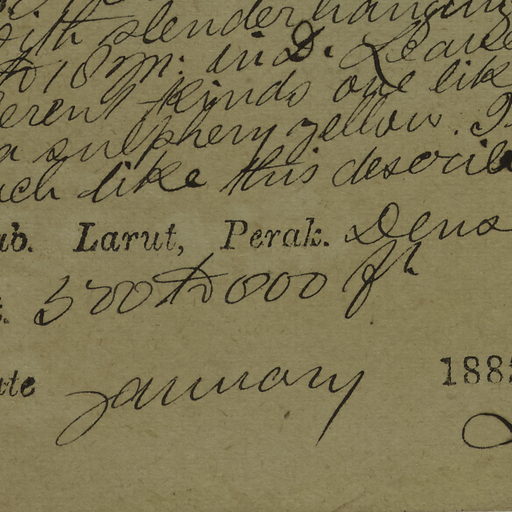 with slender hanging
to 18 m: in D. Leave
erent kinds one lik
a sulphery yellow. T
uch like this describe
ab. Larut, Perak. Dens
500 to 000 ft
ate January 188